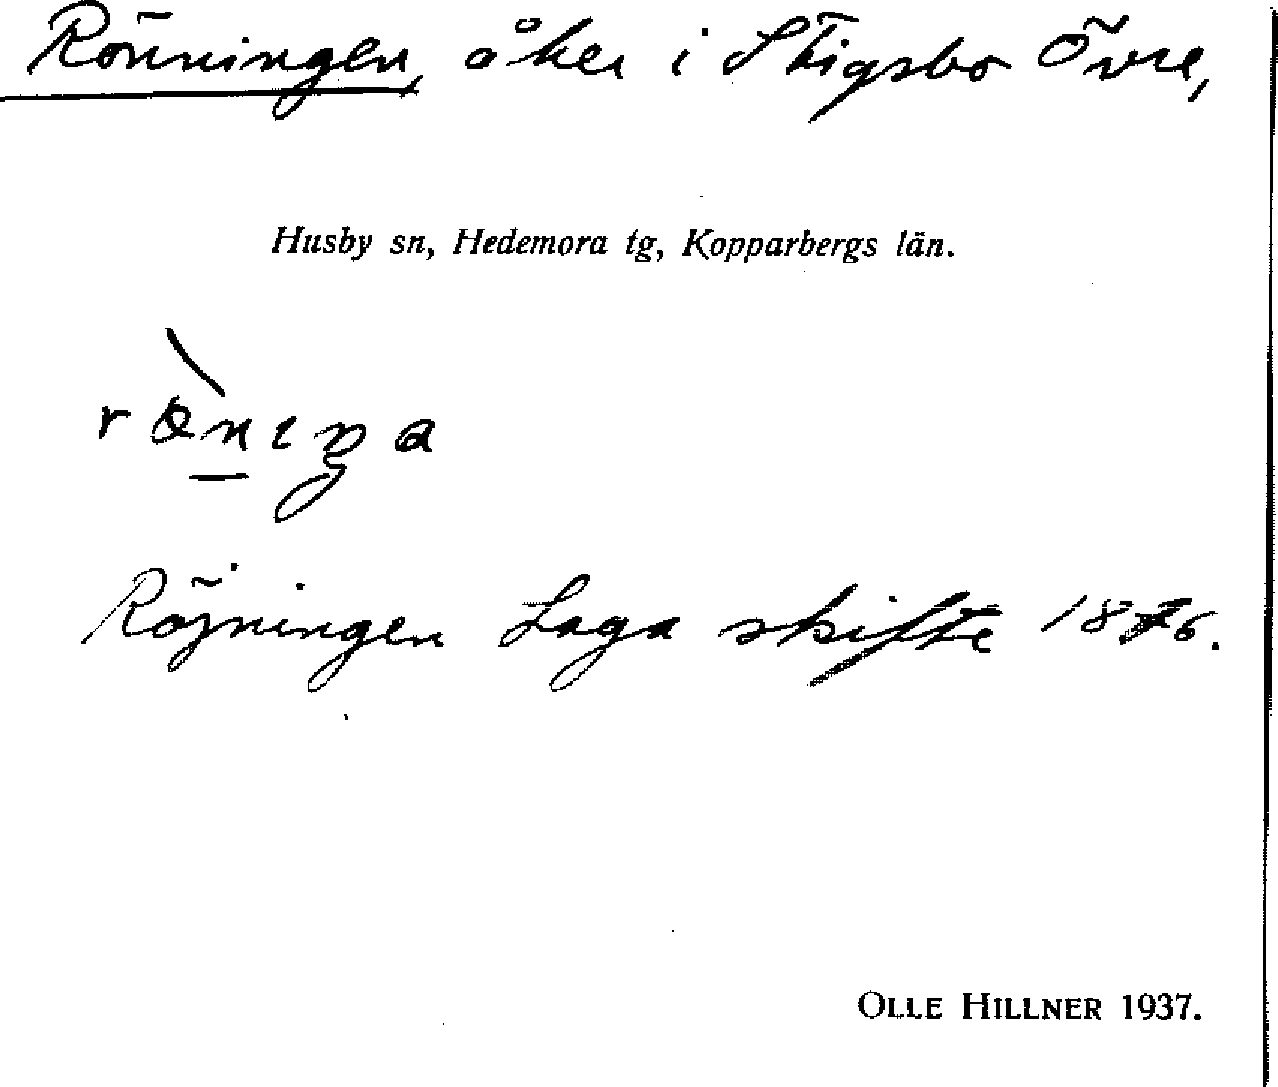 Rönningen, åker i Stigsbo Övre,
Husby sn, Hedemora tg, Kopparbergs län.
Röjningen Laga skifte 1876.
OLLE HILLNER 1937.